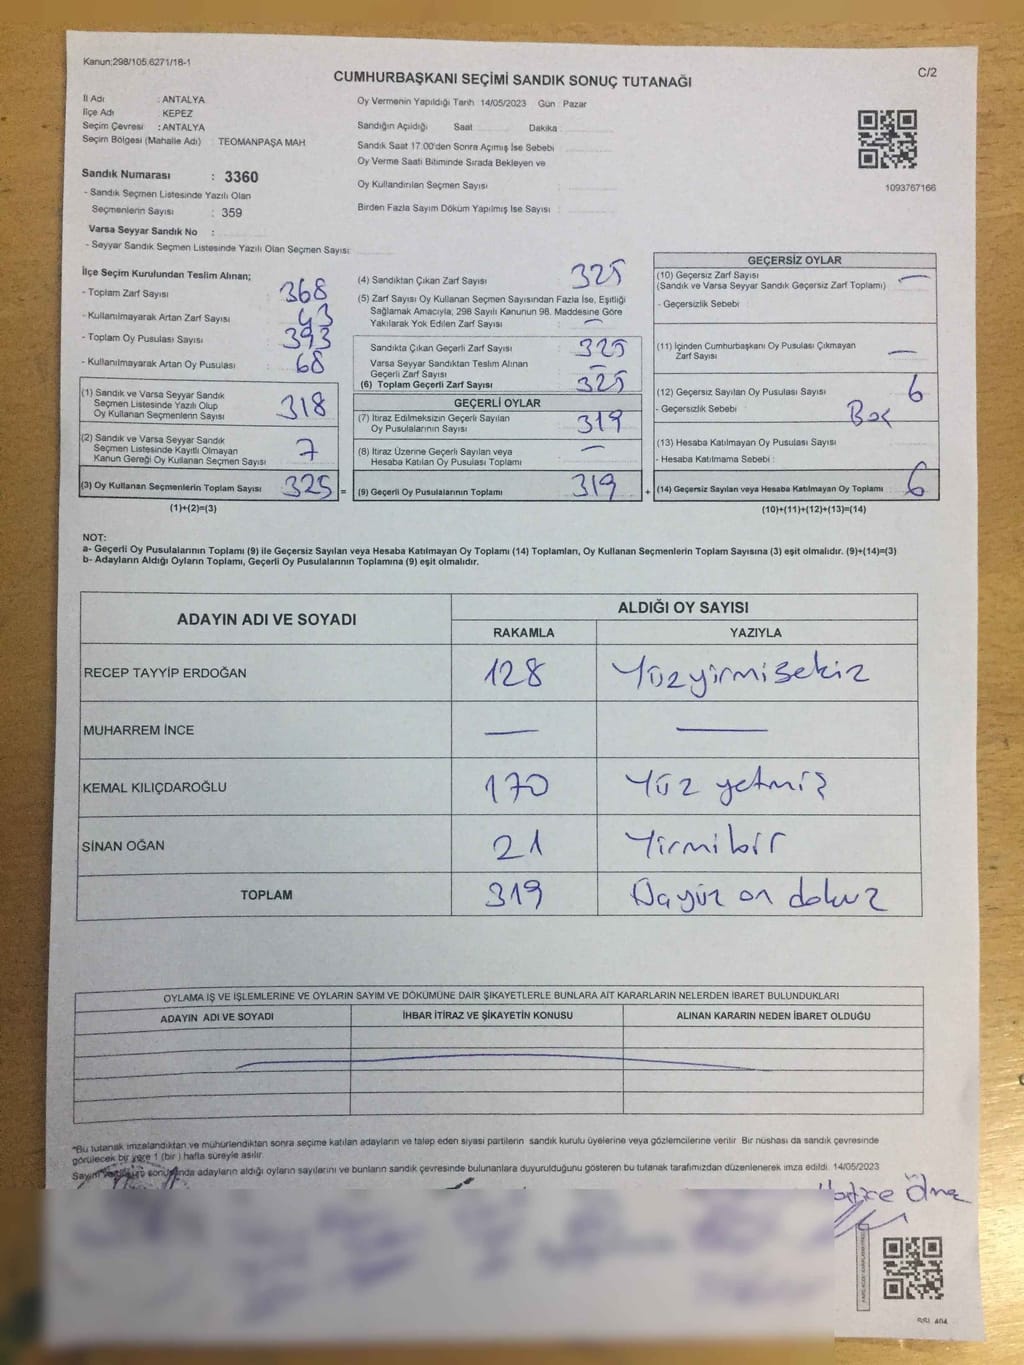 Kanun:298/105,6271/18-1
C/2
CUMHURBAŞKANI SEÇİMİ SANDIK SONUÇ TUTANAĞI
İl Adı : ANTALYA
İlçe Adı : KEPEZ
Seçim Çevresi : ANTALYA
Seçim Bölgesi (Mahalle Adı) : TEOMANPAŞA MAH
Sandık Numarası : 3360
- Sandık Seçmen Listesinde Yazılı Olan
Seçmenlerin Sayısı : 359
Varsa Seyyar Sandık No :
- Seyyar Sandık Seçmen Listesinde Yazılı Olan Seçmen Sayısı:
Oy Vermenin Yapıldığı Tarih 14/05/2023 Gün : Pazar
Sandığın Açıldığı Saat Dakika
Sandık Saat 17.00'den Sonra Açımış İse Sebebi
Oy Verme Saati Bitiminde Sırada Bekleyen ve
Oy Kullandırılan Seçmen Sayısı
Birden Fazla Sayım Döküm Yapılmış İse Sayısı
1093767166
İlçe Seçim Kurulundan Teslim Alınan;
- Toplam Zarf Sayısı : 368
- Kullanılmayarak Artan Zarf Sayısı : 43
- Toplam Oy Pusulası Sayısı : 393
- Kullanılmayarak Artan Oy Pusulası : 68
(1) Sandık ve Varsa Seyyar Sandık
Seçmen Listesinde Yazılı Olup
Oy Kullanan Seçmenlerin Sayısı 318
(2) Sandık ve Varsa Seyyar Sandık
Seçmen Listesinde Kayıtlı Olmayan
Kanun Gereği Oy Kullanan Seçmen Sayısı 7
(3) Oy Kullanan Seçmenlerin Toplam Sayısı 325 =
(1)+(2)=(3)
(4) Sandıktan Çıkan Zarf Sayısı 325
(5) Zarf Sayısı Oy Kullanan Seçmen Sayısından Fazla İse, Eşitliği
Sağlamak Amacıyla, 298 Sayılı Kanunun 98. Maddesine Göre
Yakılarak Yok Edilen Zarf Sayısı : —
Sandıkta Çıkan Geçerli Zarf Sayısı : 325
Varsa Seyyar Sandıktan Teslim Alınan
Geçerli Zarf Sayısı —
(6) Toplam Geçerli Zarf Sayısı 325
GEÇERLİ OYLAR
(7) İtiraz Edilmeksizin Geçerli Sayılan
Oy Pusulalarının Sayısı 319
(8) İtiraz Üzerine Geçerli Sayılan veya
Hesaba Katılan Oy Pusulası Toplamı —
(9) Geçerli Oy Pusulalarının Toplamı 319 +
GEÇERSİZ OYLAR
(10) Geçersiz Zarf Sayısı
(Sandık ve Varsa Seyyar Sandık Geçersiz Zarf Toplamı) —
- Geçersizlik Sebebi
(11) İçinden Cumhurbaşkanı Oy Pusulası Çıkmayan
Zarf Sayısı —
(12) Geçersiz Sayılan Oy Pusulası Sayısı 6
- Geçersizlik Sebebi
(13) Hesaba Katılmayan Oy Pusulası Sayısı
- Hesaba Katılmama Sebebi :
(14) Geçersiz Sayılan veya Hesaba Katılmayan Oy Toplamı 6
(10)+(11)+(12)+(13)=(14)
NOT:
a- Geçerli Oy Pusulalarının Toplamı (9) ile Geçersiz Sayılan veya Hesaba Katılmayan Oy Toplamı (14) Toplamları, Oy Kullanan Seçmenlerin Toplam Sayısına (3) eşit olmalıdır. (9)+(14)=(3)
b- Adayların Aldığı Oyların Toplamı, Geçerli Oy Pusulalarının Toplamına (9) eşit olmalıdır.
ADAYIN ADI VE SOYADI
ALDIĞI OY SAYISI
RAKAMLA YAZIYLA
RECEP TAYYİP ERDOĞAN 128 Yüzyirmisekiz
MUHARREM İNCE — —
KEMAL KILIÇDAROĞLU 170 Yüz yetmiş
SİNAN OĞAN 21 Yirmibir
TOPLAM 319 Üçyüz on dokuz
OYLAMA İŞ VE İŞLEMLERİNE VE OYLARIN SAYIM VE DÖKÜMÜNE DAİR ŞİKAYETLERLE BUNLARA AİT KARARLARIN NELERDEN İBARET BULUNDUKLARI
ADAYIN ADI VE SOYADI İHBAR İTİRAZ VE ŞİKAYETİN KONUSU ALINAN KARARIN NEDEN İBARET OLDUĞU
"Bu tutanak imzalandıktan ve mühürlendikten sonra seçime katılan adayların ve talep eden siyasi partilerin sandık kurulu üyelerine veya gözlemcilerine verilir. Bir nüshası da sandık çevresinde
görülecek bir yere 1 (bir ) hafta süreyle asılır.
Sayım ve adayların aldığı oyların sayılarını ve bunların sandık çevresinde bulunanlara duyurulduğunu gösteren bu tutanak tarafımızdan düzenlenerek imza edildi. 14/05/2023